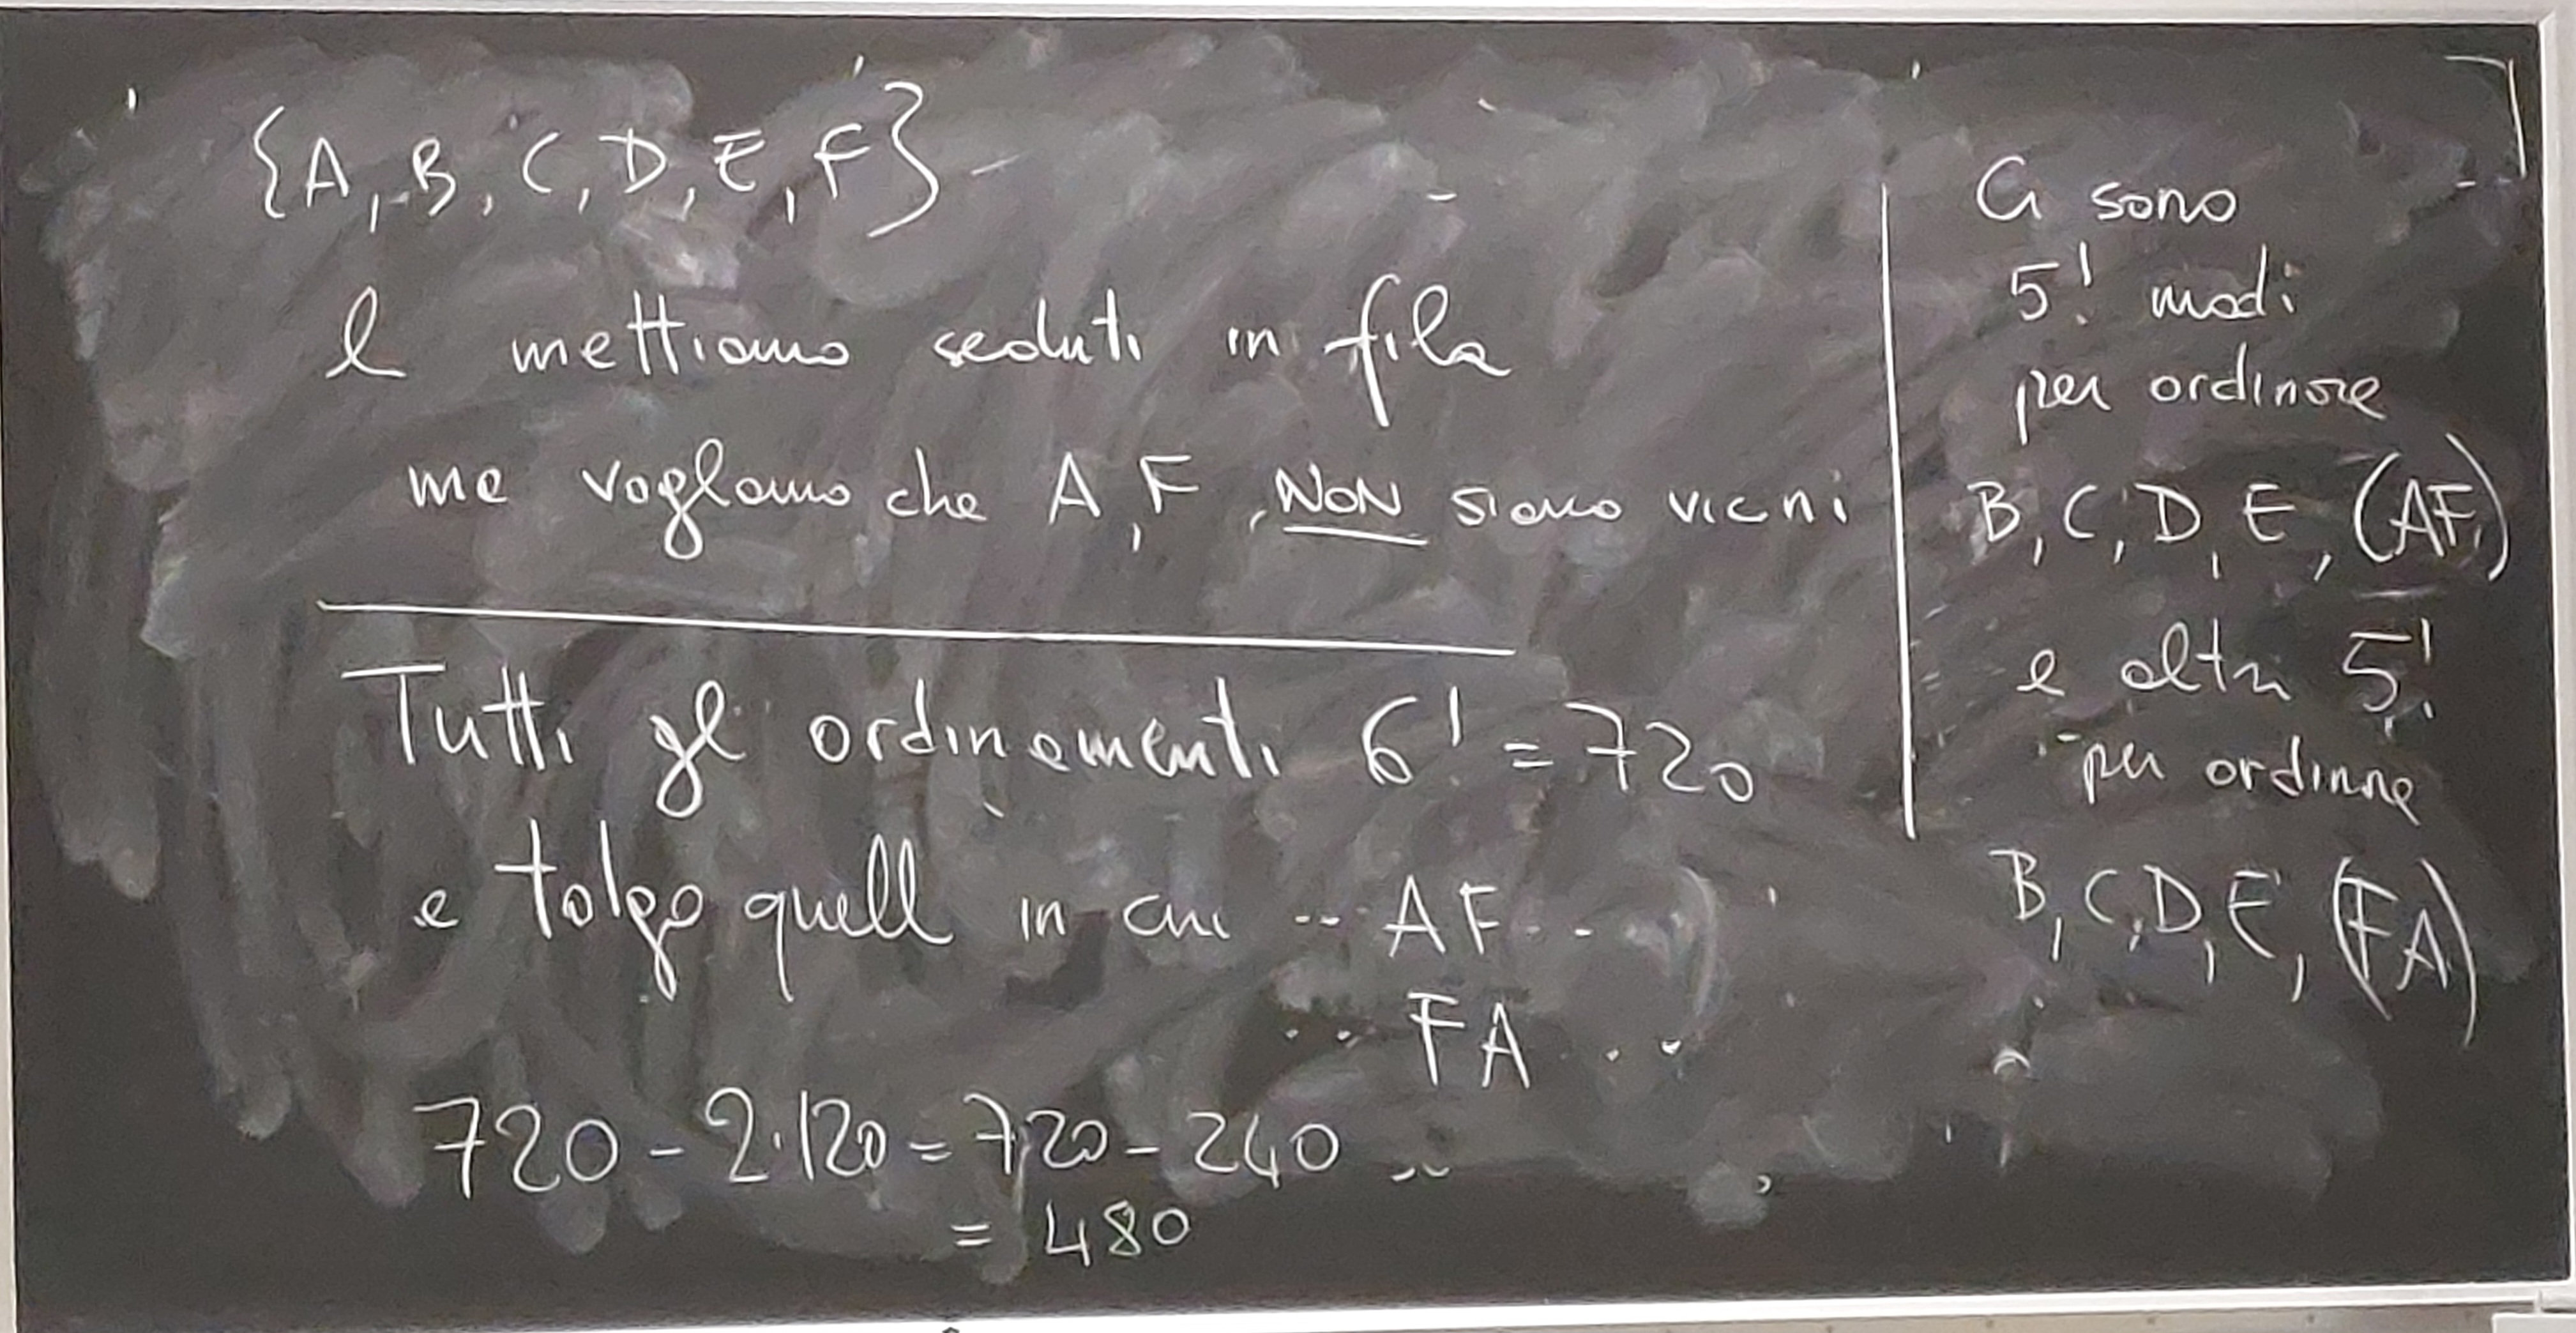 {A, B, C, D, E, F}
li mettiamo seduti in fila
ma vogliamo che A, F, NON siano vicini
Tutti gli ordinamenti 6! = 720
e tolgo quelli in cui .. AF ..
.. FA ..
720 - 2·120 = 720 - 240
= 480
Ci sono
5! modi
per ordinare
B, C, D, E, (AF)
e altri 5!
per ordinare
B, C, D, E, (FA)